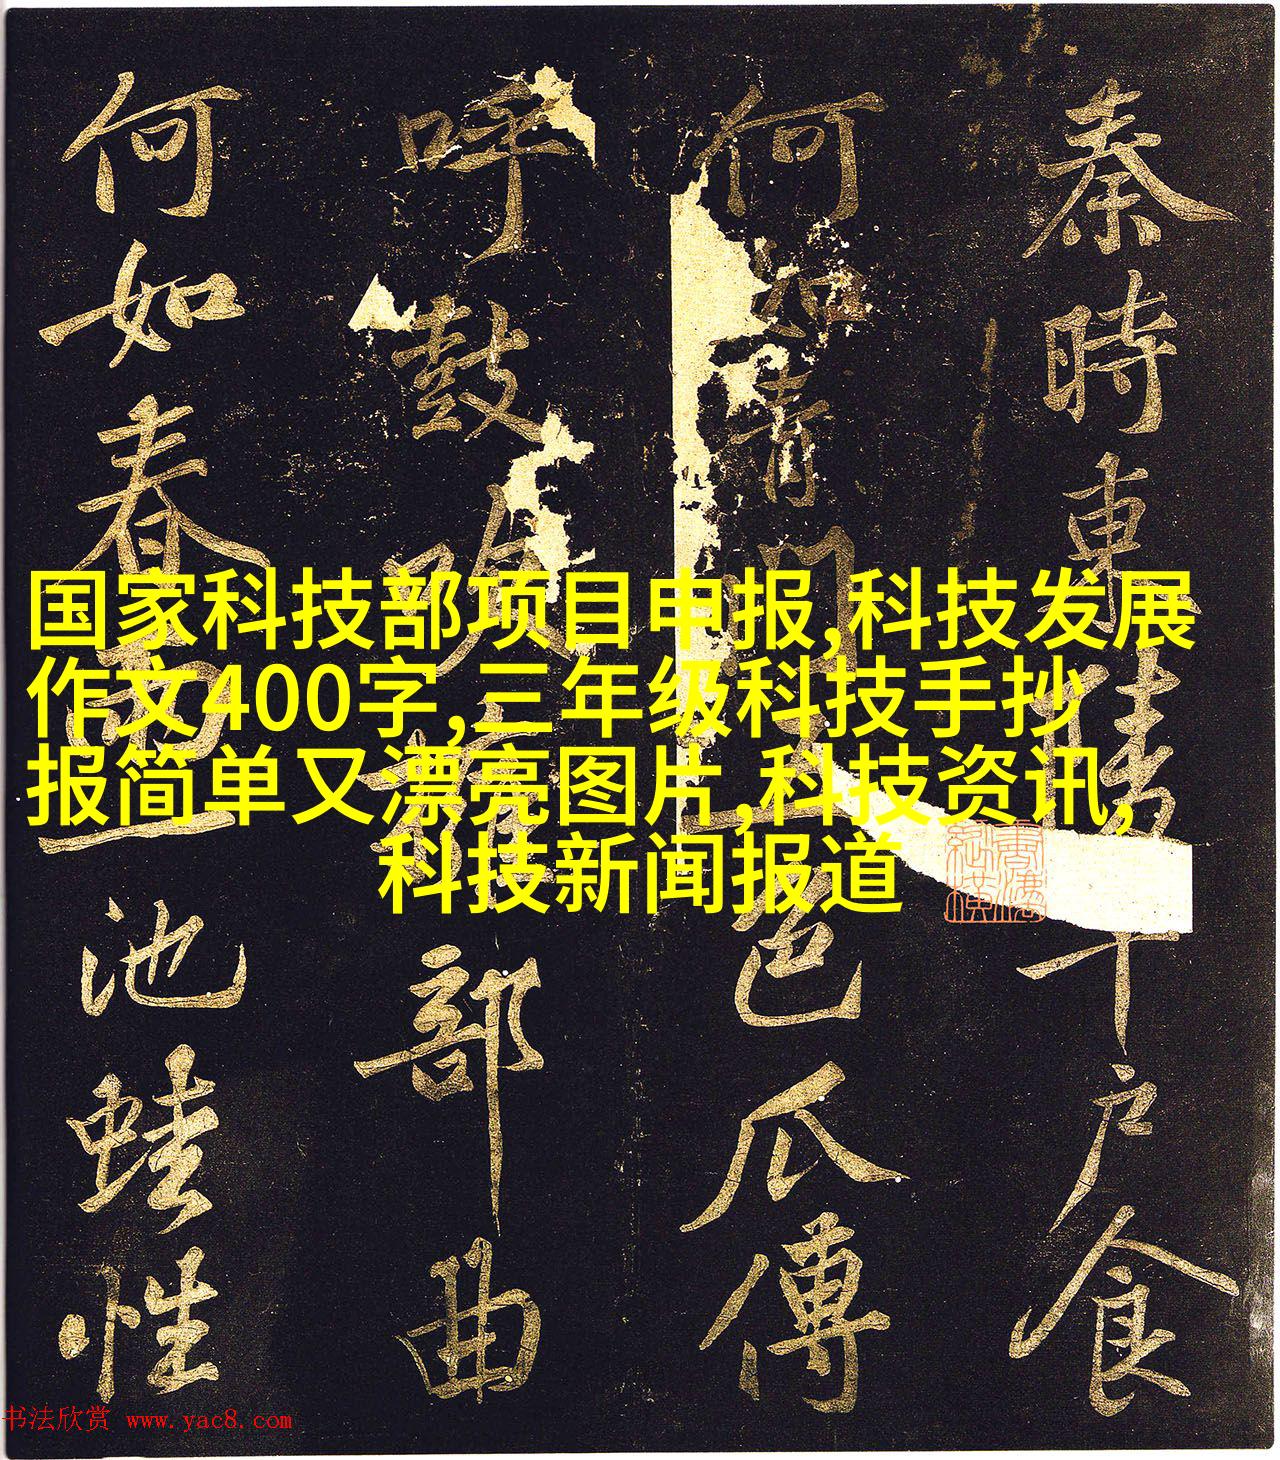 秦時東千户食
何如青門色瓜傳
呼鼓吹部曲
何如春池蛙性
国家科技部项目申报,科技发展
作文400字,三年级科技手抄
报简单又漂亮图片,科技资讯,
科技新闻报道
书法欣赏 www.yac8.com